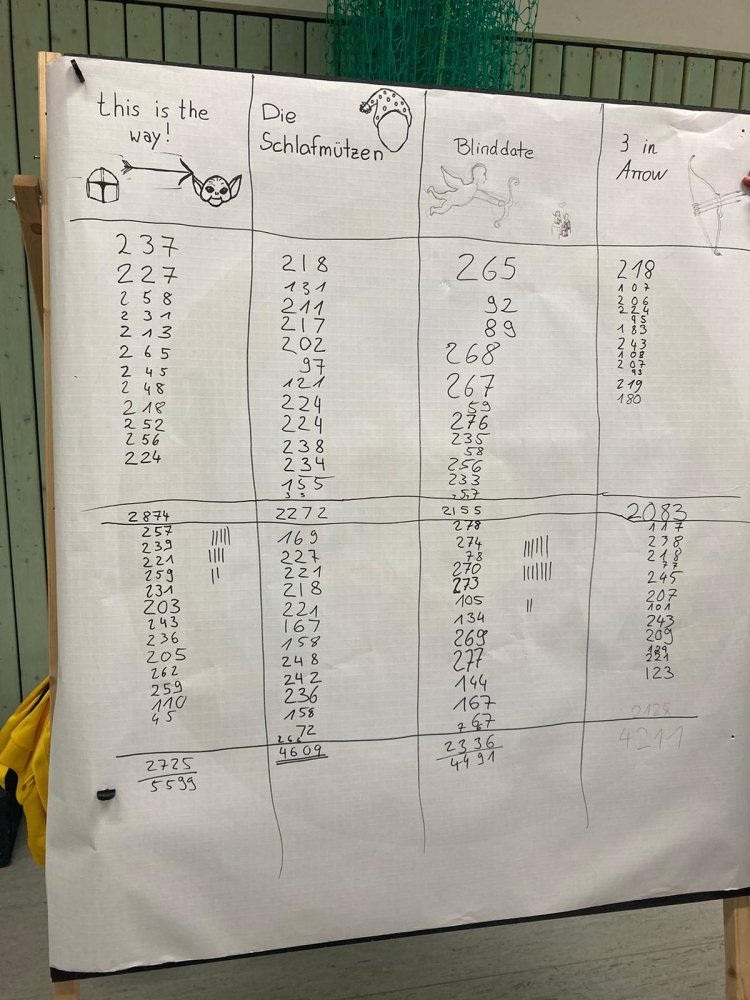 this is the
way!
237
227
258
231
213
265
245
248
218
252
256
224
2874
257
239
221
259
231
203
243
236
205
262
259
110
45
2725
5599
Die
Schlafmützen
218
131
211
217
202
97
121
224
224
238
234
155
2272
169
227
221
218
221
167
158
248
242
236
158
72
4609
Blinddate
265
92
89
268
267
59
276
235
58
256
233
57
2155
278
274
78
270
273
105
134
269
277
144
167
67
2336
4491
3 in
Arrow
218
107
206
224
95
183
243
108
207
93
219
180
2083
117
238
218
77
245
207
101
243
209
221
123
2128
4211